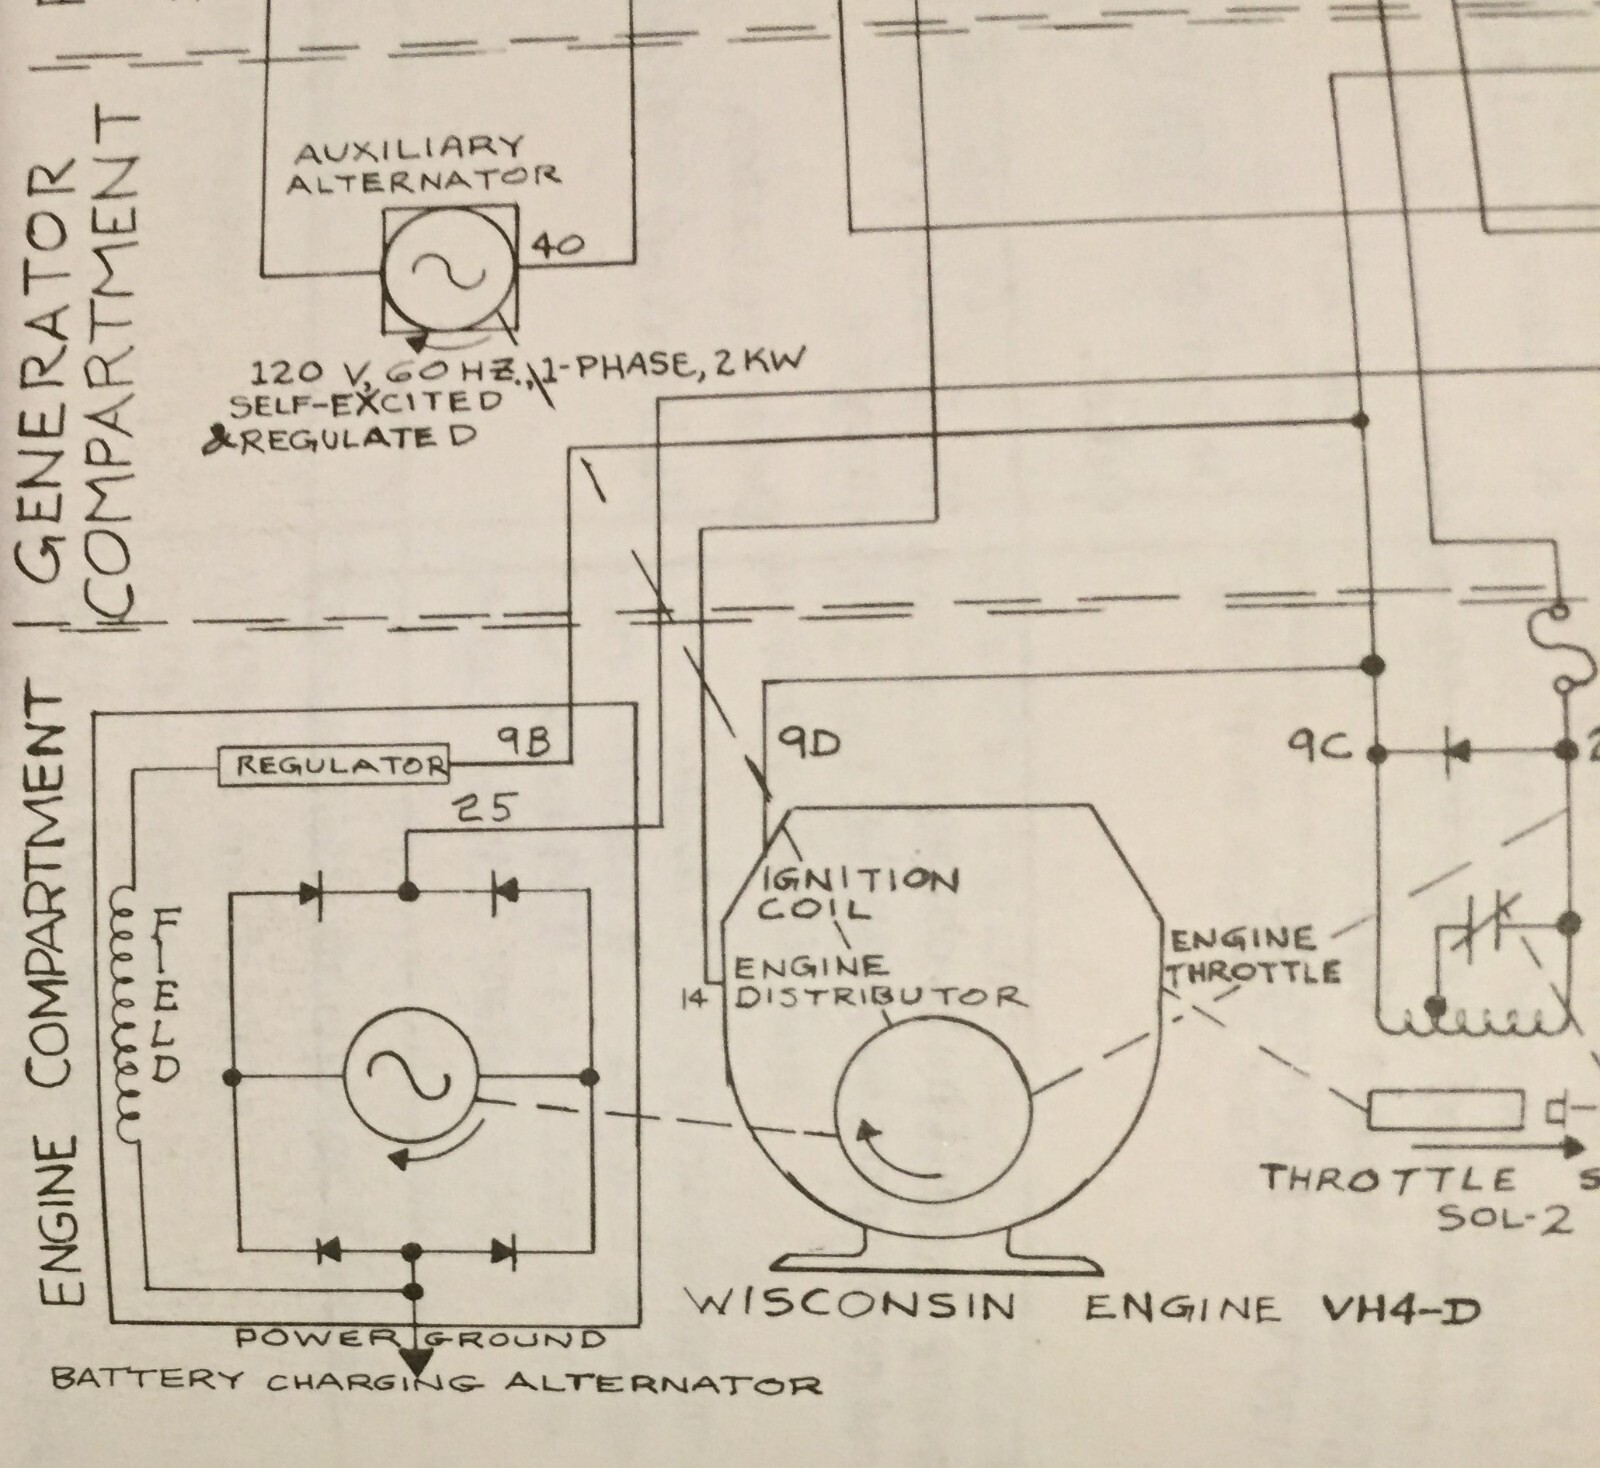 GENERATOR
COMPARTMENT
AUXILIARY
ALTERNATOR
40
120 V, 60 HZ., 1-PHASE, 2 KW
SELF-EXCITED
& REGULATED
ENGINE COMPARTMENT
9B
REGULATOR
25
FIELD
9D
9C
2
IGNITION
COIL
ENGINE
DISTRIBUTOR
14
ENGINE
THROTTLE
THROTTLE S
SOL-2
WISCONSIN ENGINE VH4-D
POWER GROUND
BATTERY CHARGING ALTERNATOR